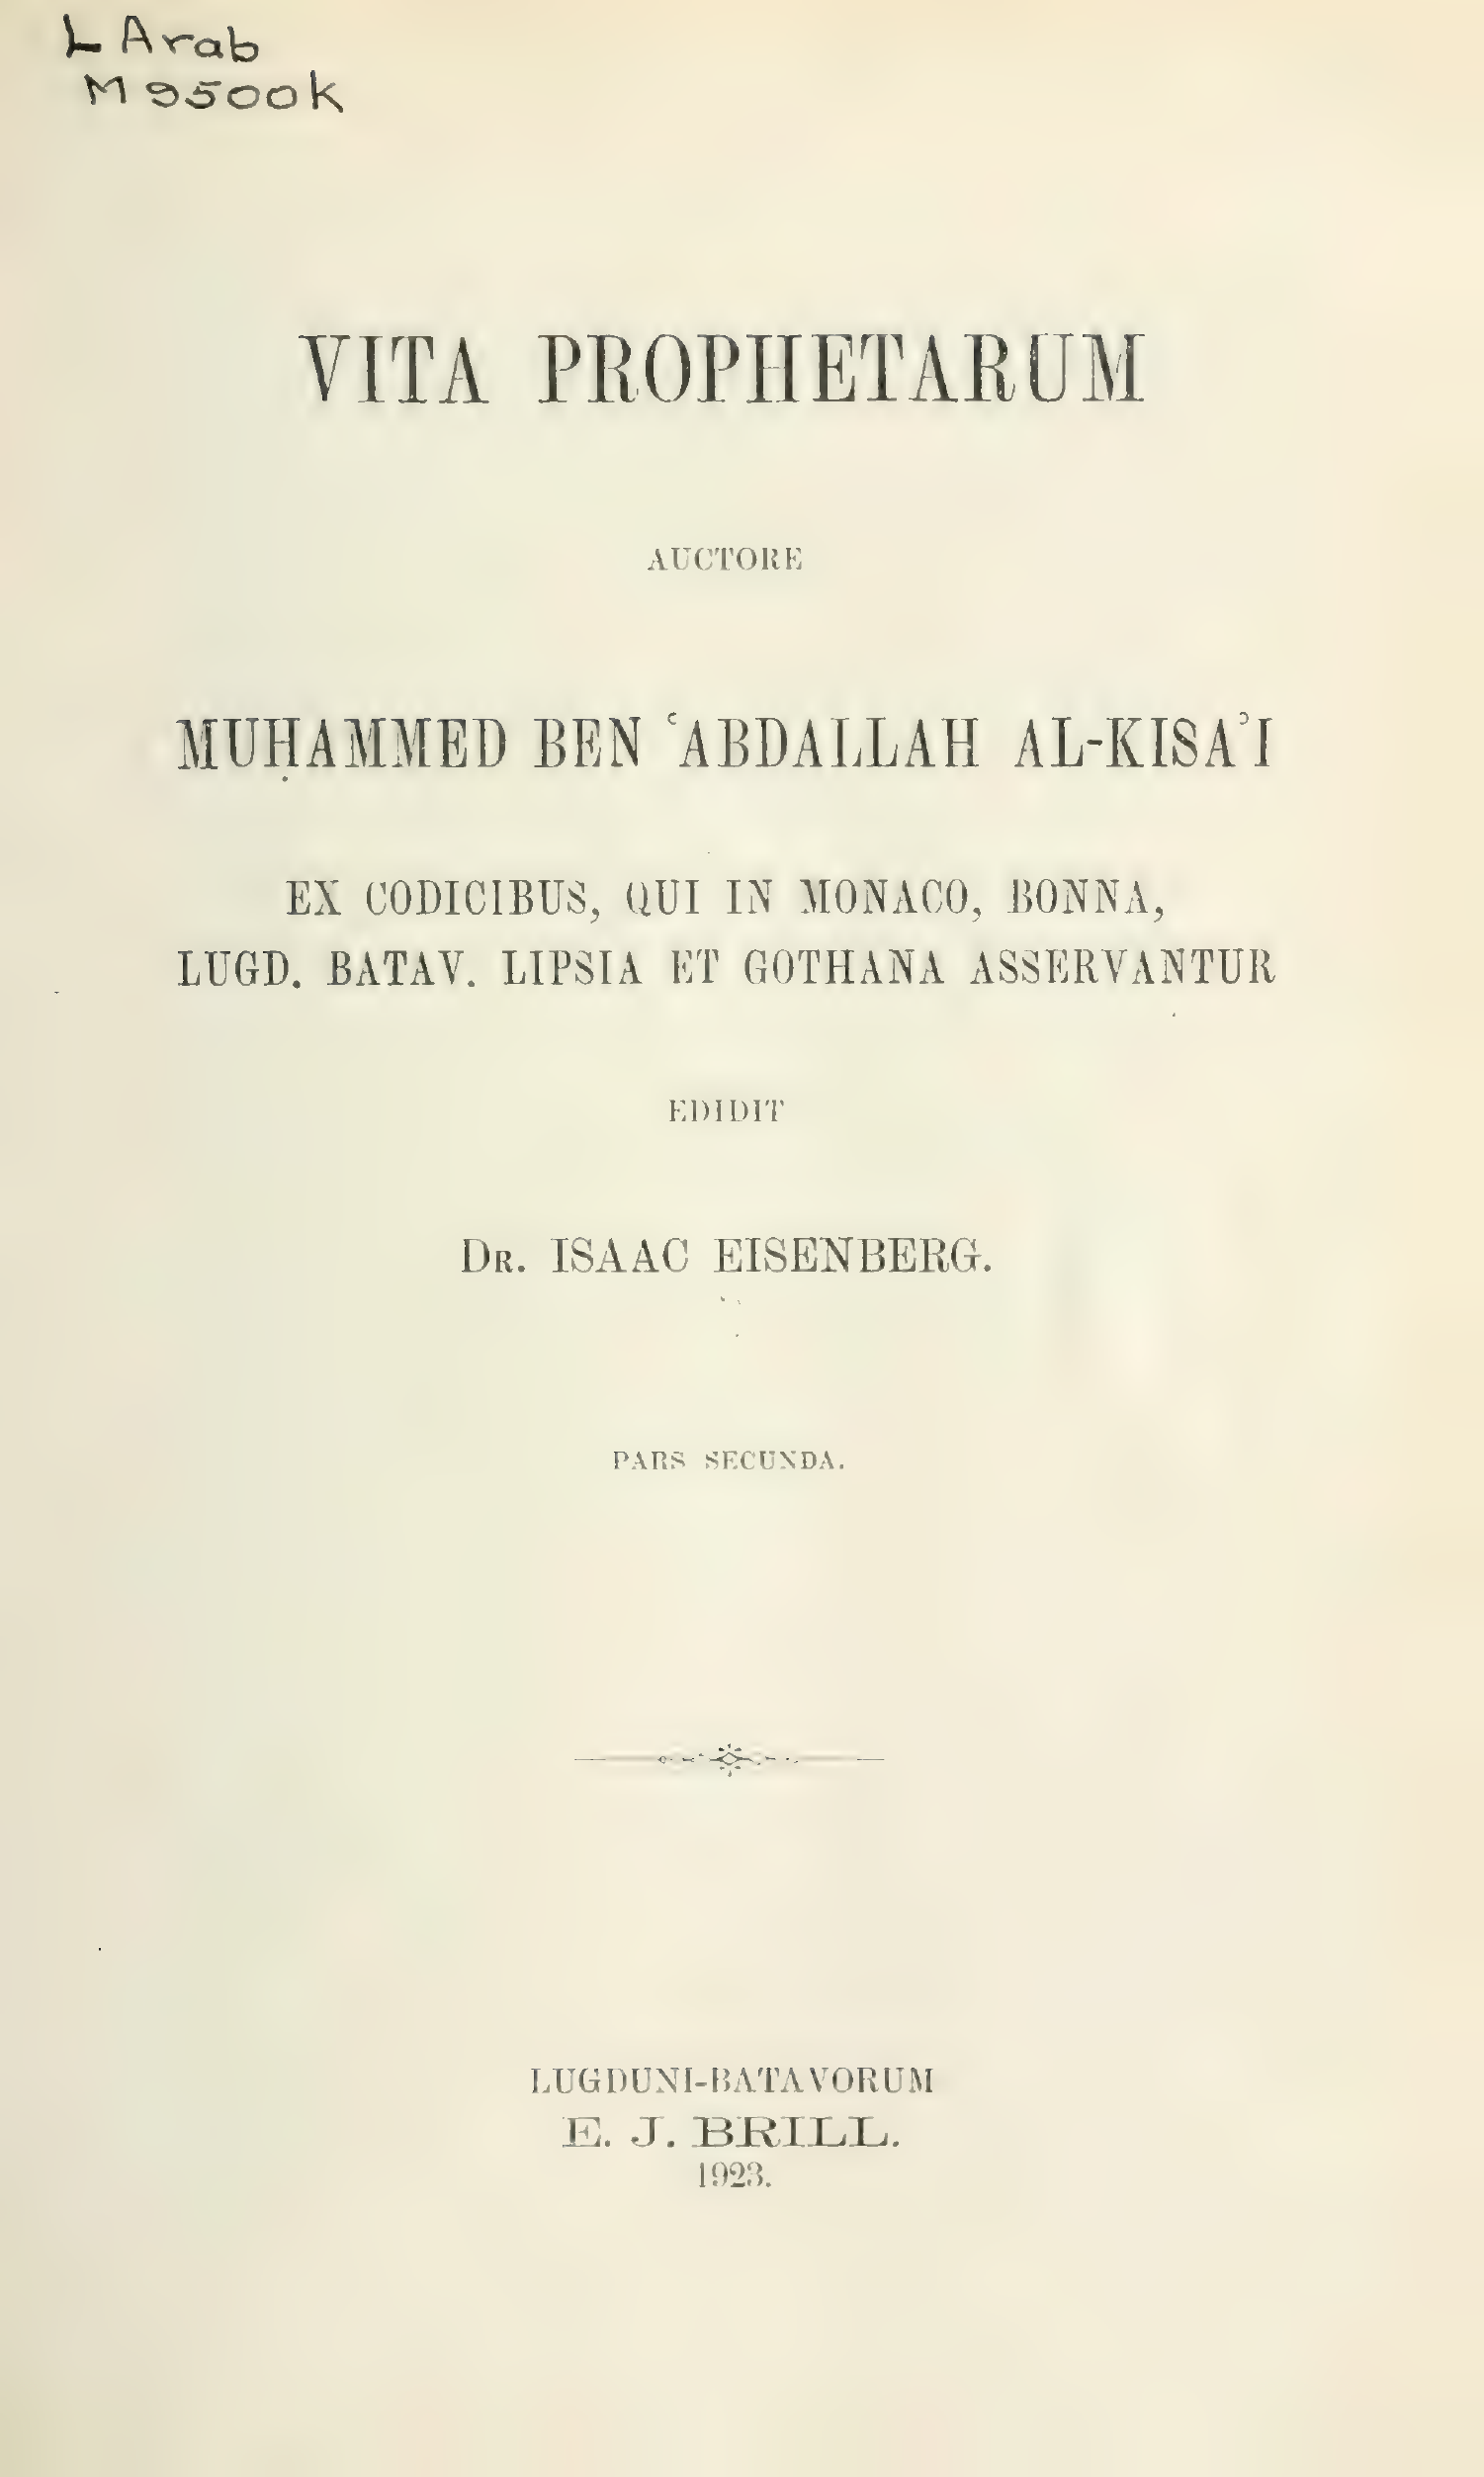 L Arab
M9500k
VITA PROPHETARUM
AUCTORE
MUḤAMMED BEN ʿABDALLAH AL-KISAʾI
EX CODICIBUS, QUI IN MONACO, BONNA,
LUGD. BATAV. LIPSIA ET GOTHANA ASSERVANTUR
EDIDIT
DR. ISAAC EISENBERG.
PARS SECUNDA.
LUGDUNI-BATAVORUM
E. J. BRILL.
1923.